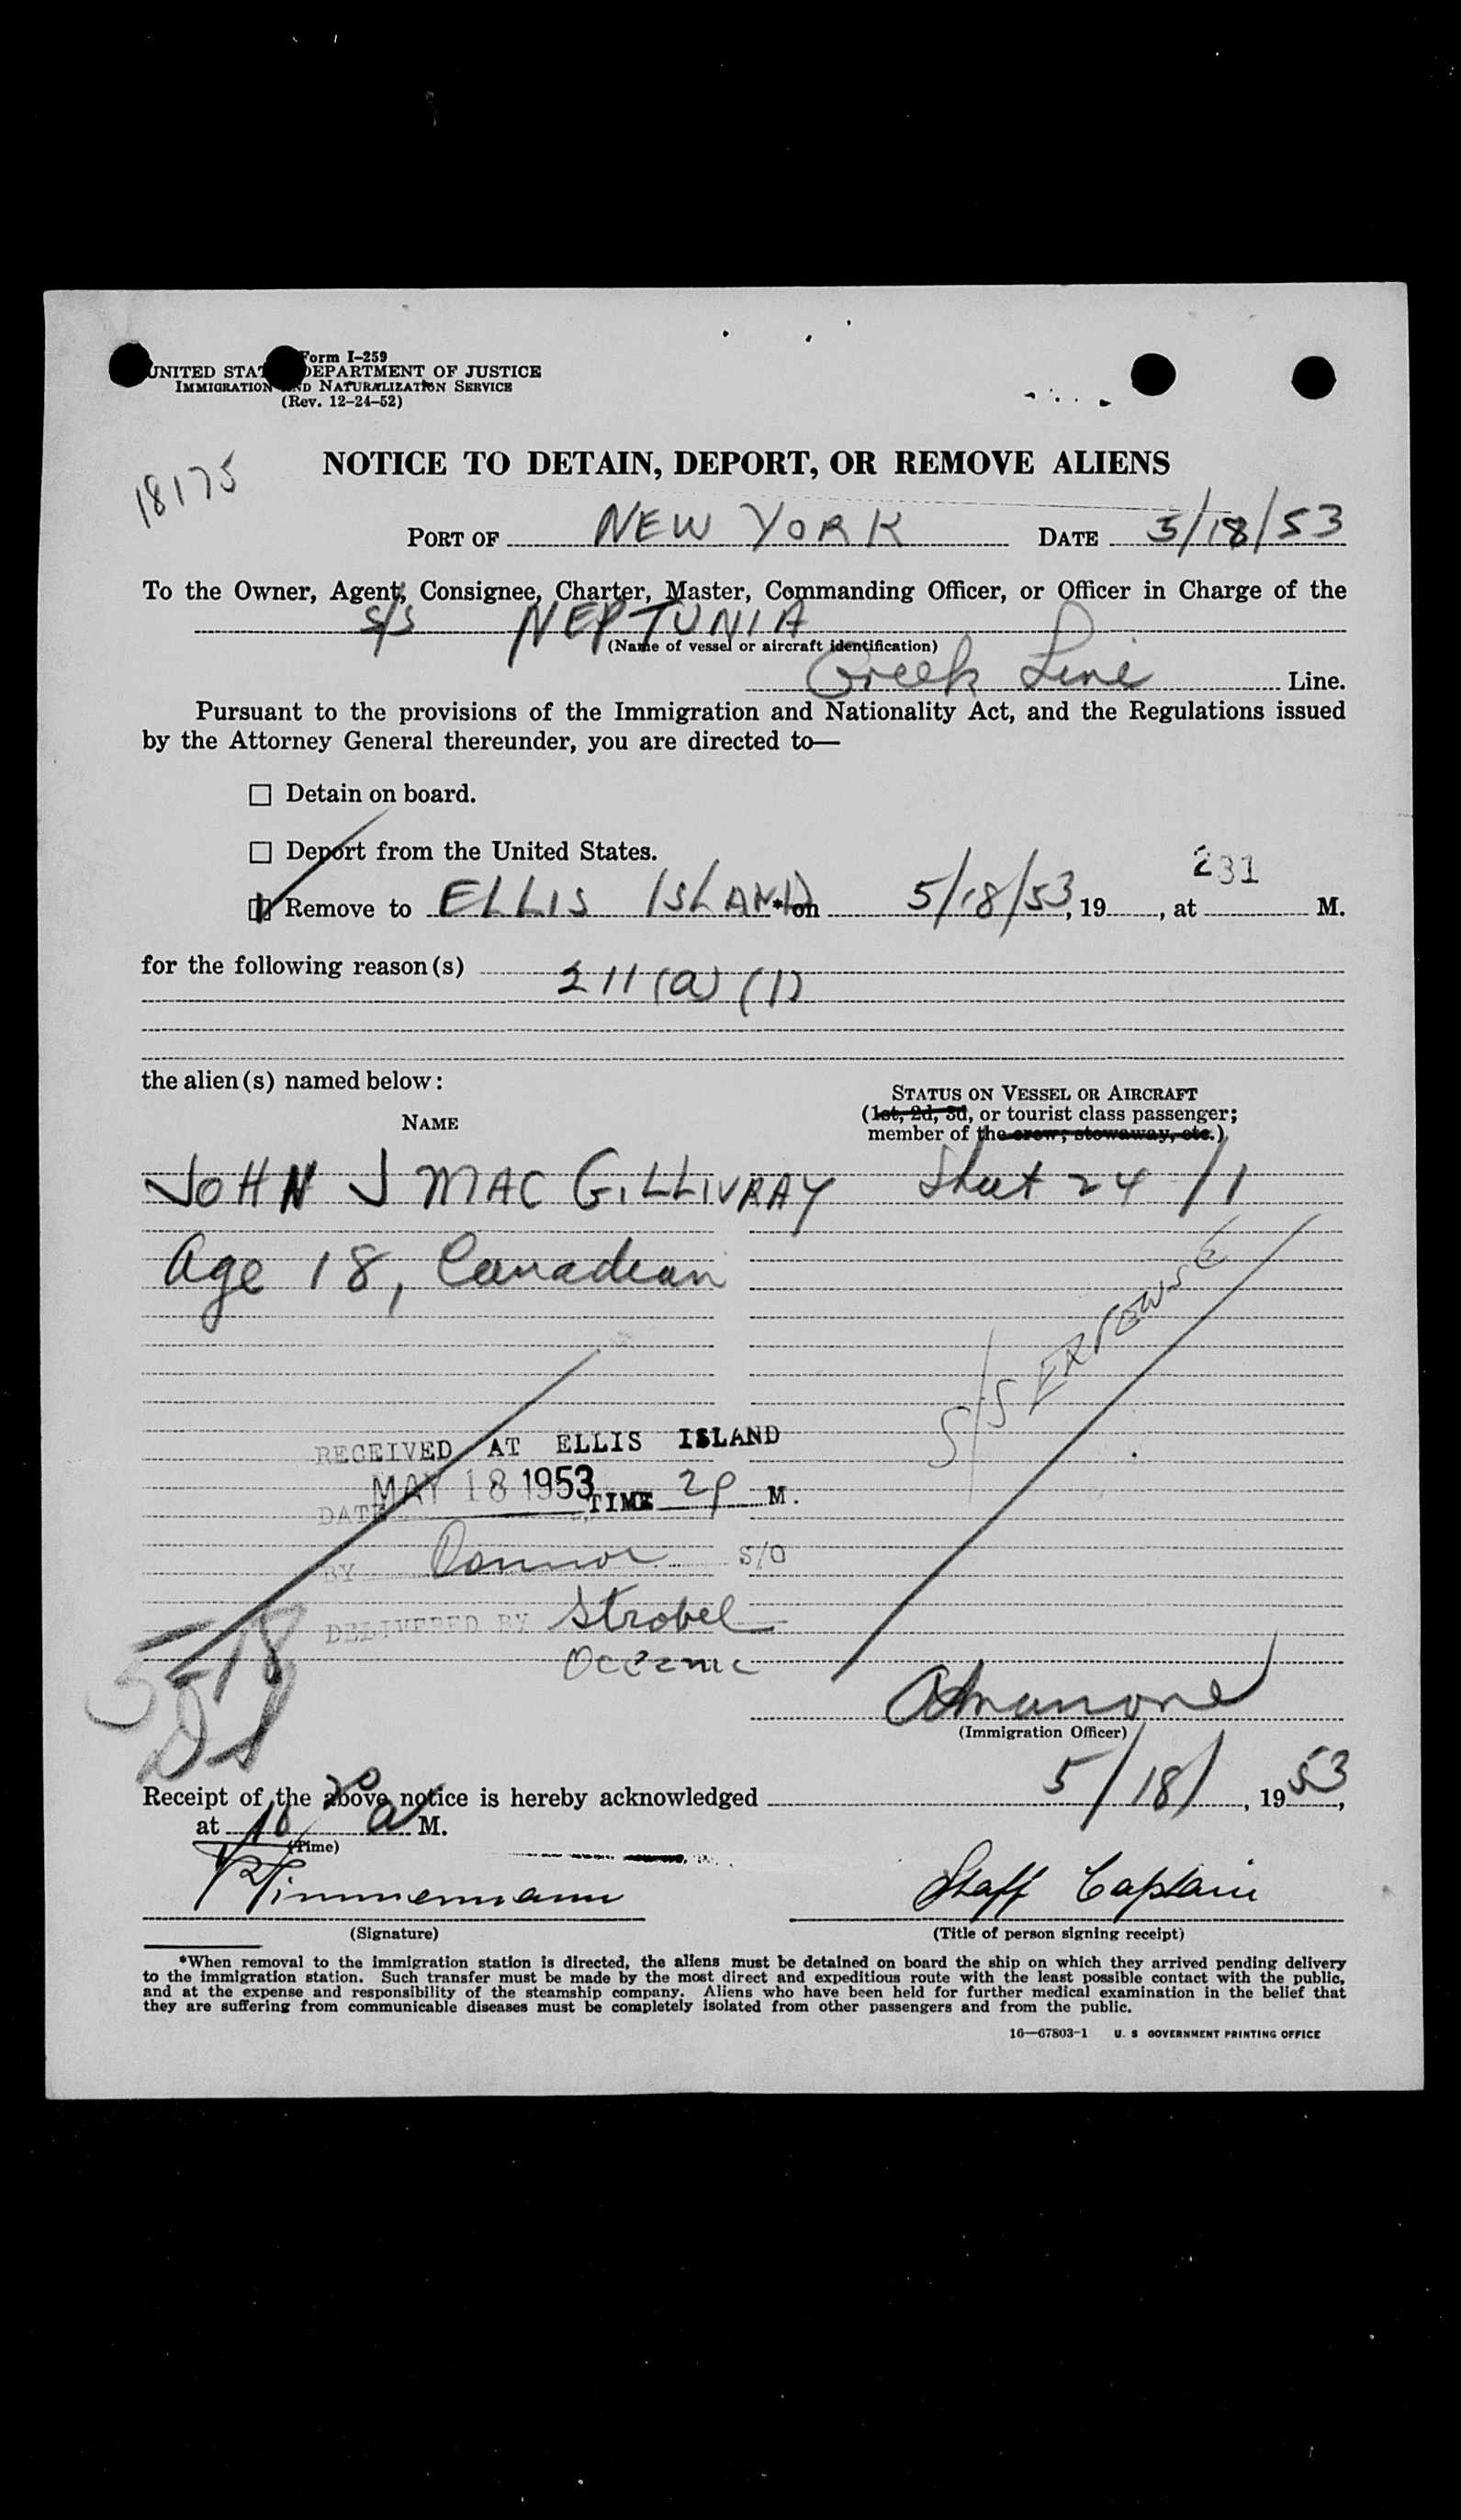 Form I-259
UNITED STATES DEPARTMENT OF JUSTICE
IMMIGRATION AND NATURALIZATION SERVICE
(Rev. 12-24-52)
18175
NOTICE TO DETAIN, DEPORT, OR REMOVE ALIENS
PORT OF NEW YORK DATE 5/18/53
To the Owner, Agent, Consignee, Charter, Master, Commanding Officer, or Officer in Charge of the
S/S NEPTUNIA
(Name of vessel or aircraft identification)
Greek Line Line.
Pursuant to the provisions of the Immigration and Nationality Act, and the Regulations issued
by the Attorney General thereunder, you are directed to—
Detain on board.
Deport from the United States.
231
Remove to ELLIS ISLAND *on 5/18/53, 19, at M.
for the following reason(s) 211 (a) (1)
the alien(s) named below:
NAME
STATUS ON VESSEL OR AIRCRAFT
(1st, 2d, 3d, or tourist class passenger;
member of the crew; stowaway, etc.)
JOHN J MAC GILLIVRAY Sheet 24/1
Age 18, Canadian
S/S
RECEIVED AT ELLIS ISLAND
DATE MAY 18 1953 TIME 2P M.
BY Connor S/O
DELIVERED BY Strobel
Oceanic
5-18
(Immigration Officer)
Receipt of the above notice is hereby acknowledged 5/18/, 1953,
at 10 20 a M.
(Time)
Zimmermann Staff Captain
(Signature) (Title of person signing receipt)
*When removal to the immigration station is directed, the aliens must be detained on board the ship on which they arrived pending delivery
to the immigration station. Such transfer must be made by the most direct and expeditious route with the least possible contact with the public,
and at the expense and responsibility of the steamship company. Aliens who have been held for further medical examination in the belief that
they are suffering from communicable diseases must be completely isolated from other passengers and from the public.
16—67803-1 U. S GOVERNMENT PRINTING OFFICE